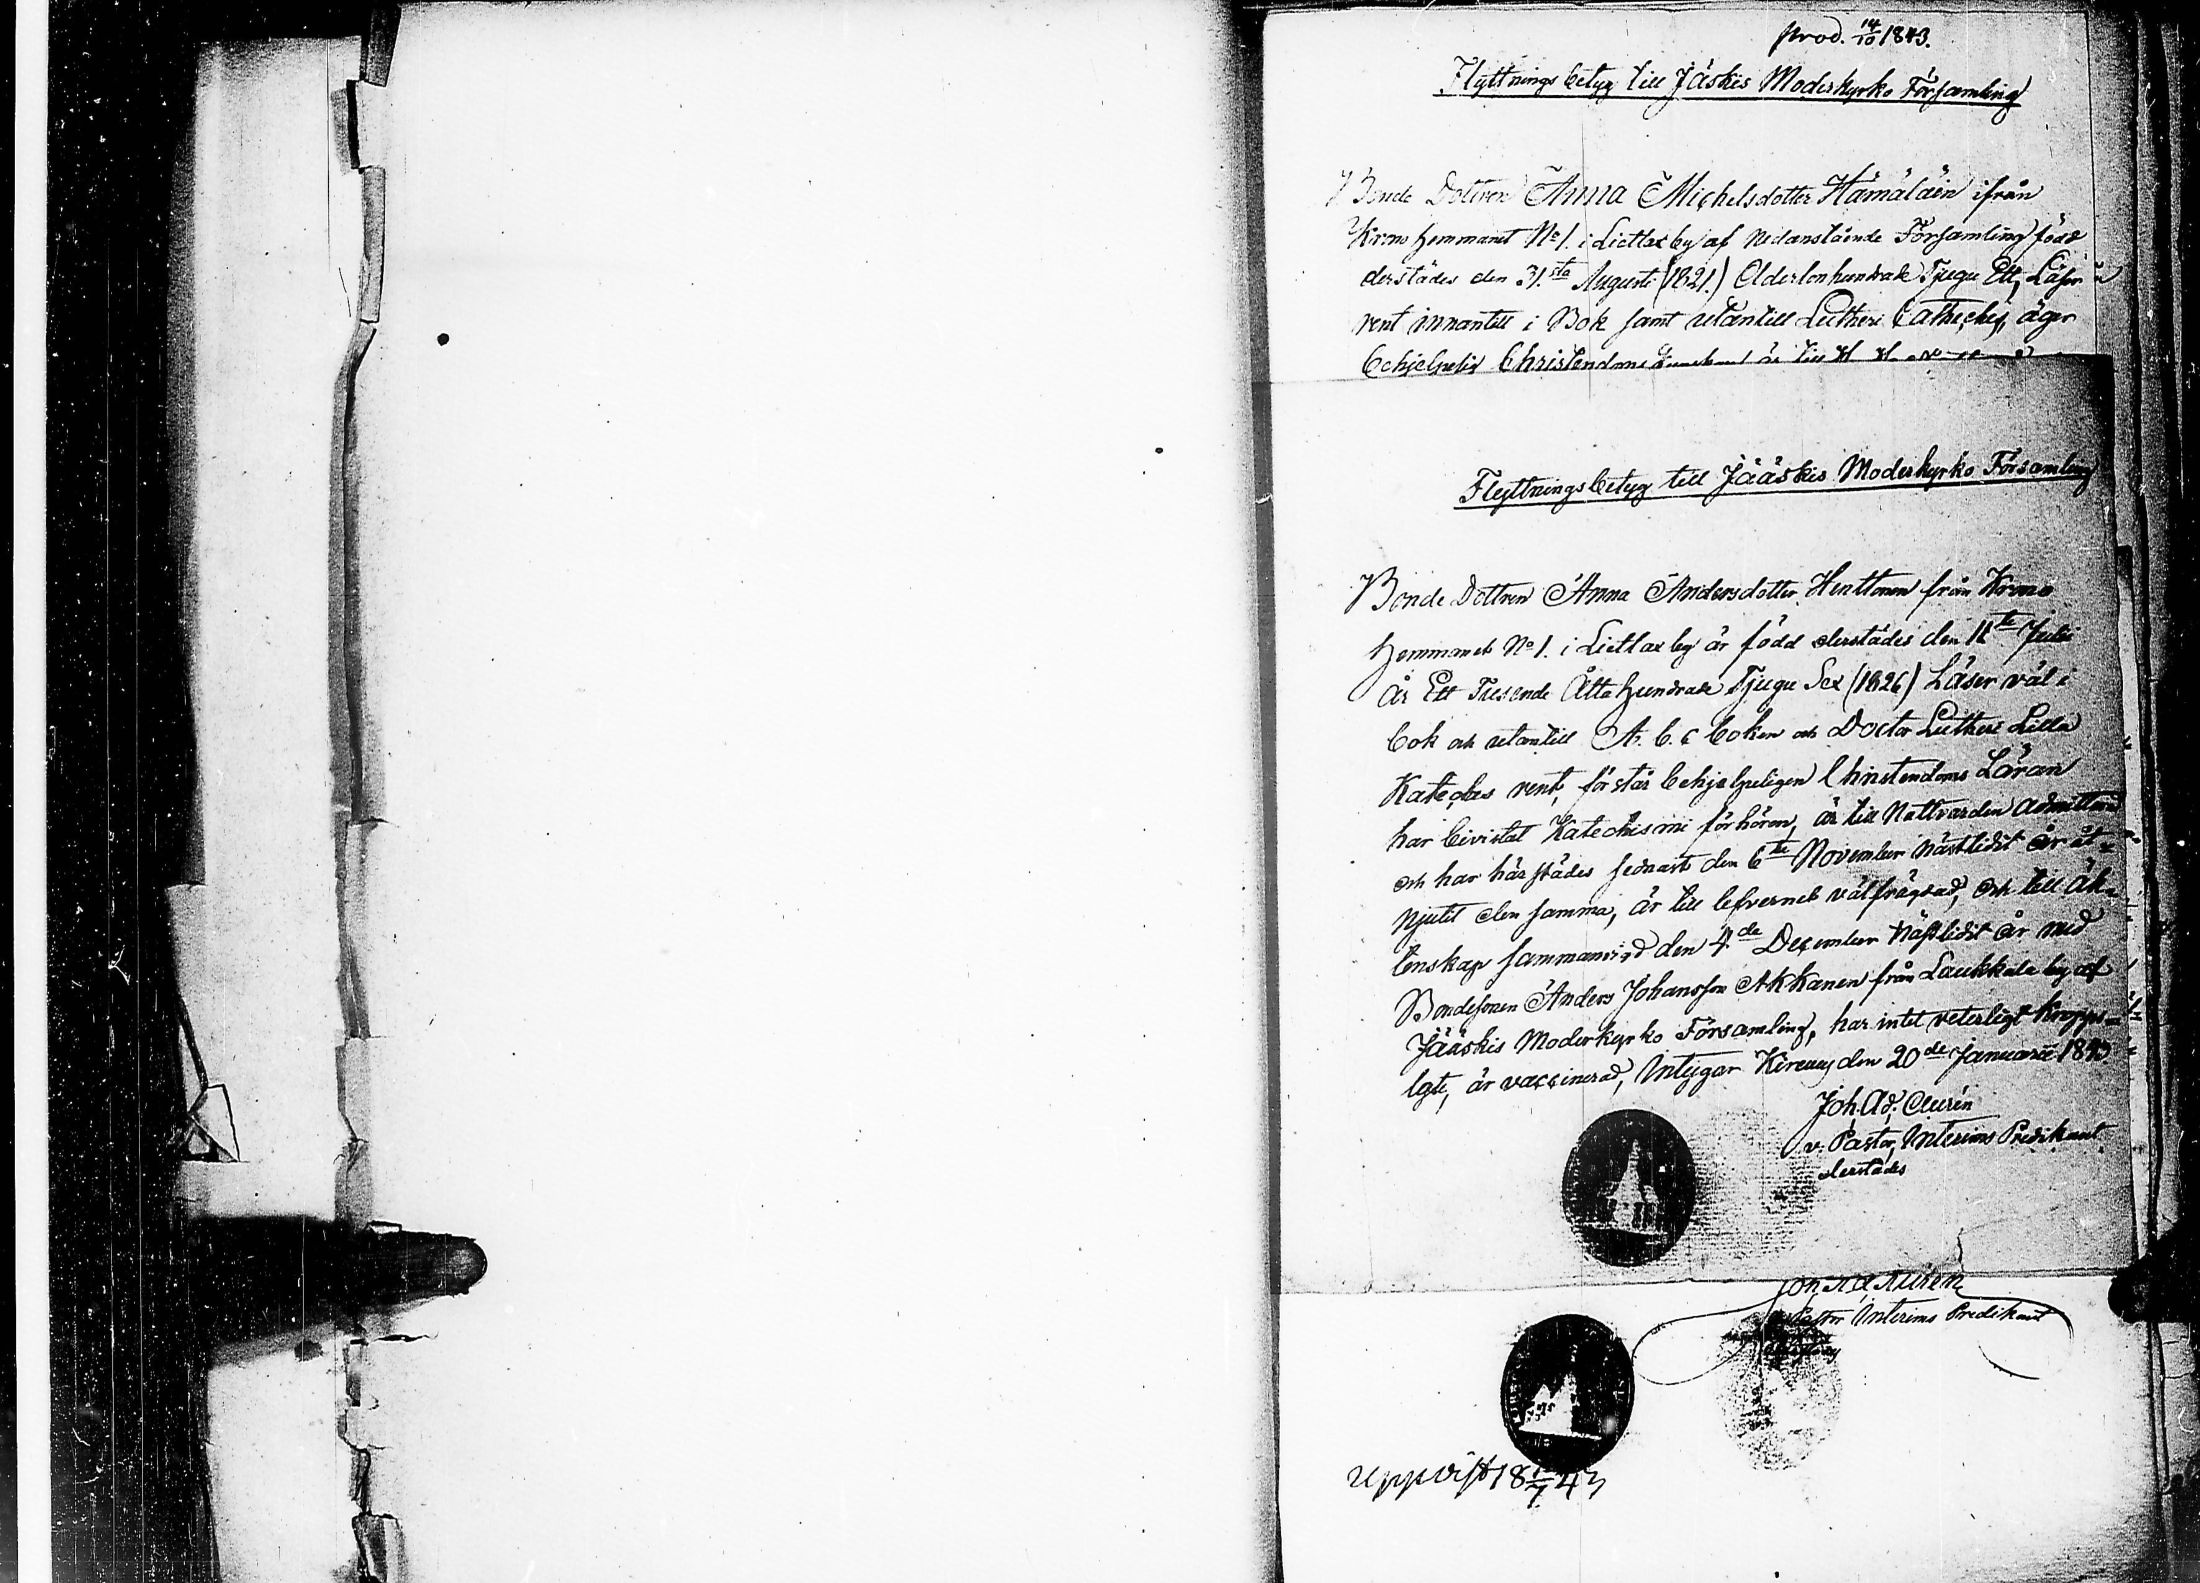 prod. 14/10 1843.
Flyttnings betyg till Jäskis Moderkyrko Församling
Bonde Dottren Anna Michelsdotter Hämäläin ifrån
Krono hemmanet No 1. i Lietlax by af nedanstående Församling född
derstädes den 31.sta Augusti (1821.) Adertonhundrade Tjugu Ett, Läser
rent innantill i Bok samt utantill Lutheri Catheches, äger
behjelpelig Christendoms kunskap är till H. H.
Flyttningsbetyg till Jääskis Moderkyrko Församling
Bonde Dottren Anna Andersdotter Henttonen från Krono
hemmanet No 1. i Lietlax by är född derstädes den 11te Julii
År Ett Tusende Åttahundrade Tjugu Sex (1826) Läser väl i
bok och utantill A. b. c boken och Doctor Lutheri Lilla
Kateches rent, förstår behjelpeligen Christendoms Läran
har bivistat Katechismi förhören, är till Nattvarden admitterad
och har härstädes sednast den 6te November nästlidit år åt-
njutit den samma, är till lefvernet välfrägdad, och till äk-
tenskap sammanvigd den 4.de December Nästlidit år med
Bondesonen Anders Johansson Akkanen från Laukkala by af
Jääskis Moderkyrko Församling, har intet veterligt kropps-
lyte, är vaccinerad, Intygar Kirvus den 20de Januarii 1843
Joh. Ad. Aurén
v. Pastor, Interims Predikant
derstädes
Joh. Ad. Aurén
v. Pastor Interims Predikant
Uppvist 18 1/7 43